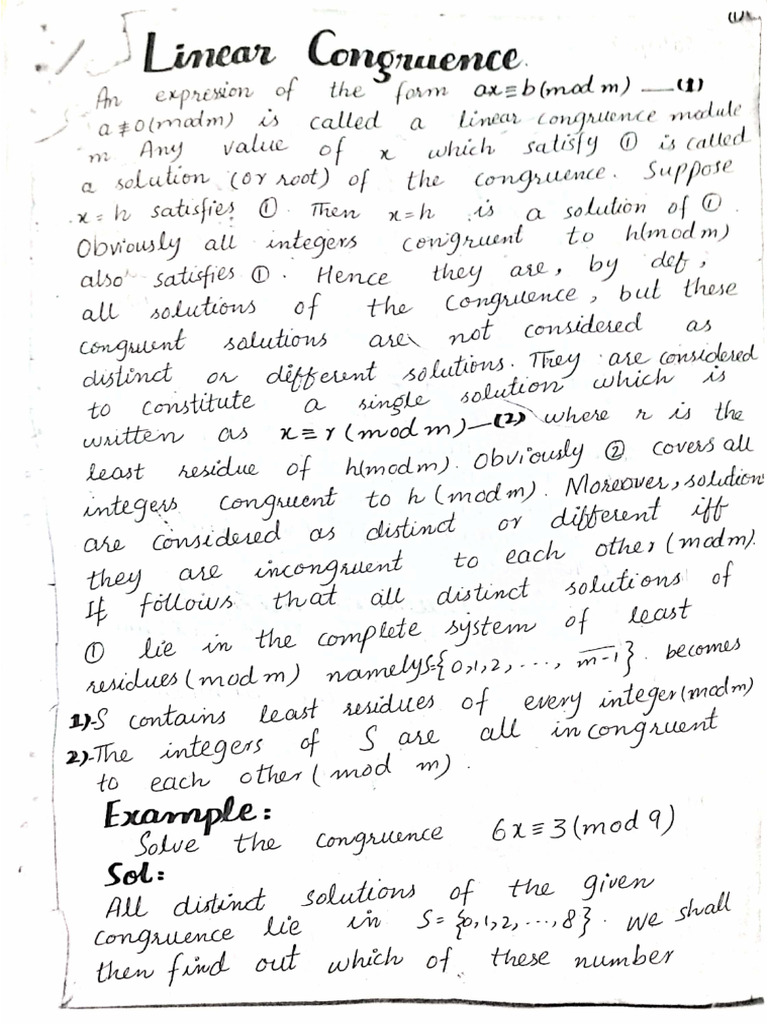 (1)
Linear Congruence.
An expression of the form ax≡b(mod m) —(1)
a≢0(modm) is called a linear congruence module
m Any value of x which satisfy ① is called
a solution (or root) of the congruence. Suppose
x=h satisfies ①. Then x=h is a solution of ①.
Obviously all integers congruent to h(modm)
also satisfies ①. Hence they are, by def,
all solutions of the congruence, but these
congruent solutions are not considered as
distinct or different solutions. They are considered
to constitute a single solution which is
written as x≡r(modm)—(2) where r is the
least residue of h(modm). Obviously ② covers all
integers congruent to h (modm). Moreover, solutions
are considered as distinct or different iff
they are incongruent to each other (modm).
If follows that all distinct solutions of
① lie in the complete system of least
residues (modm) namelyS={0,1,2, ..., m-1}. becomes
1)-S contains least residues of every integer(modm)
2)-The integers of S are all incongruent
to each other (mod m).
Example:
Solve the congruence 6x≡3(mod 9)
Sol:
All distinct solutions of the given
congruence lie in S={0,1,2, ...,8}. we shall
then find out which of these number